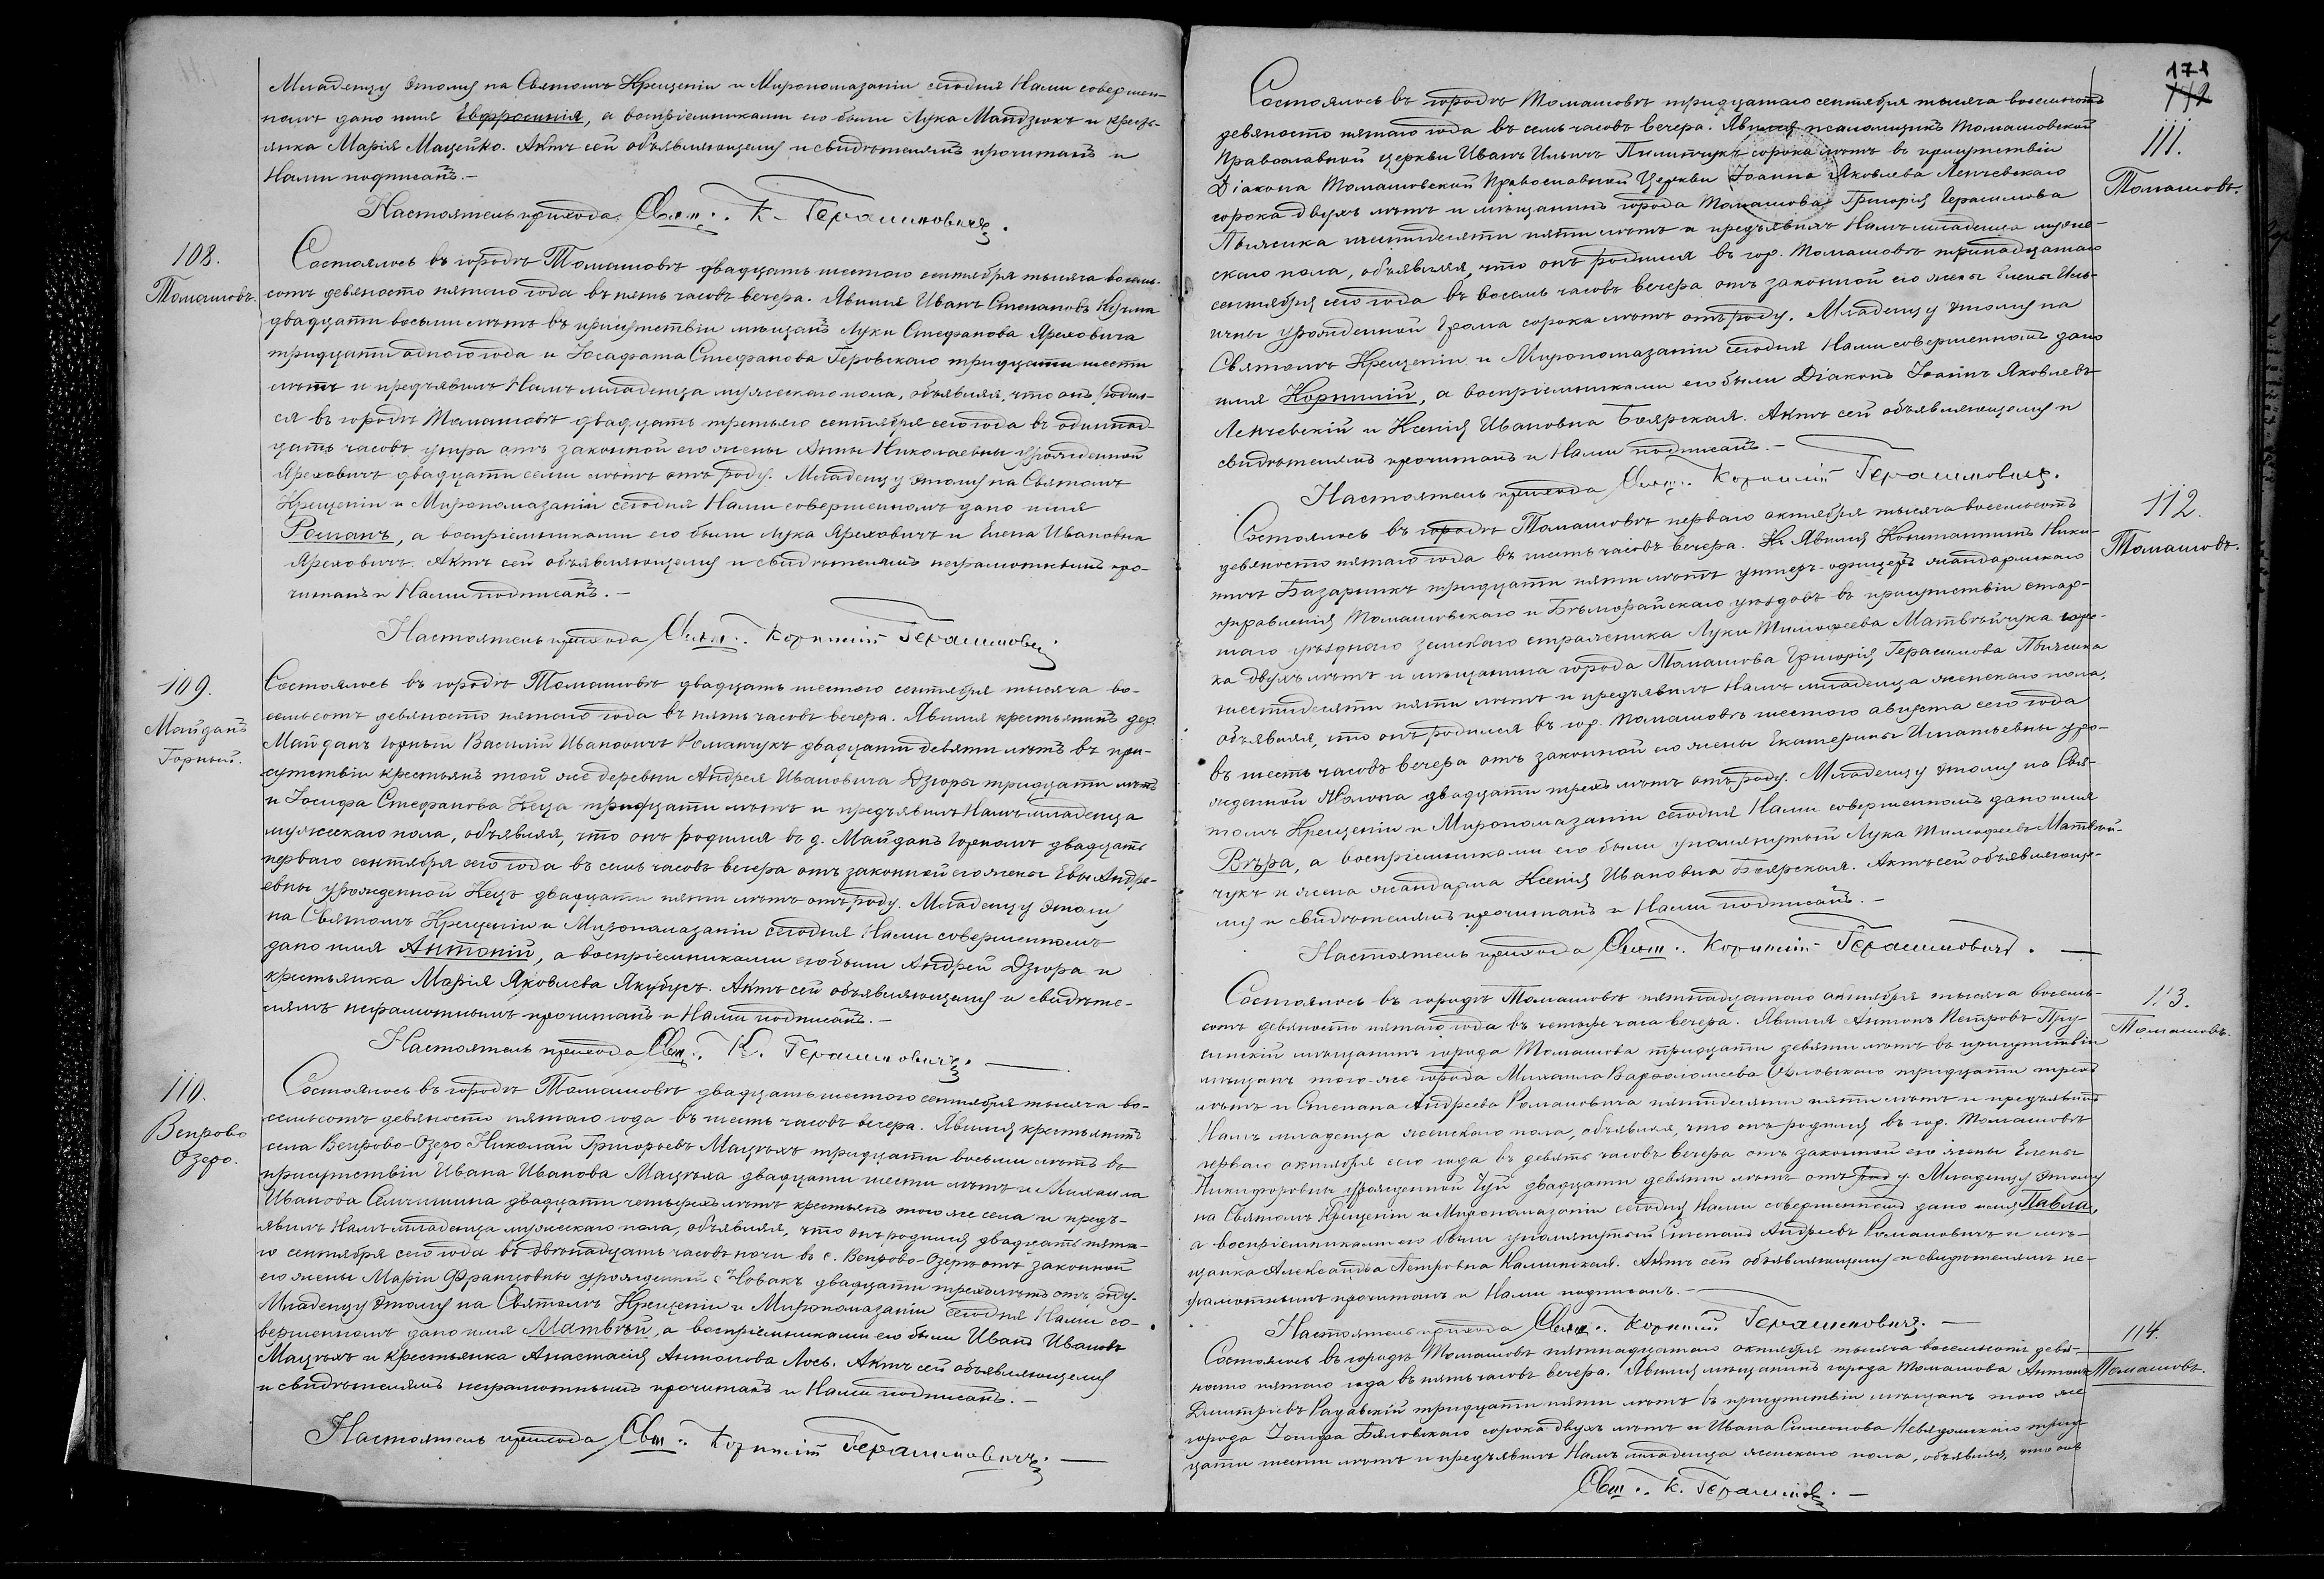 Младенцу этому на Святомъ Крещеніи и Миропомазаніи сегодня Нами совершен-
номъ дано имя Евфросинія, а воспріемниками его были Лука Мандзюкъ и кресть-
янка Марія Мацейко. Актъ сей объявляющему и свидѣтелямъ прочитанъ и
Нами подписанъ.-
Настоятель прихода Свящ. К. Герасимовичъ.
108.
Томашовъ.
Состоялось въ городѣ Томашовѣ двадцать шестого сентября тысяча восемь-
сотъ девяносто пятаго года въ пять часовъ вечера. Явился Иванъ Степановъ
двадцати восьми лѣтъ въ присутствіи мѣщанъ Луки Стефанова Яреховича
тридцати одного года и Іосафата Стефанова Геровскаго тридцати шести
лѣтъ и предъявилъ Намъ младенца мужескаго пола, объявляя, что онъ родил-
ся въ городѣ Томашовѣ двадцать третьяго сентября сего года въ одиннад-
цать часовъ утра отъ законной его жены Анны Николаевны урожденной
Яреховичъ двадцати семи лѣтъ отъ роду. Младенцу этому на Святомъ
Крещеніи и Миропомазаніи сегодня Нами совершенномъ дано имя
Романъ, а воспріемниками его были Лука Яреховичъ и Елена Ивановна
Яреховичъ. Актъ сей объявляющему и свидѣтелямъ неграмотнымъ про-
читанъ и Нами подписанъ.-
Настоятель прихода Свящ. Корнилій Герасимовичъ
109.
Майданъ
Горный.
Состоялось въ городѣ Томашовѣ двадцать шестого сентября тысяча во-
семьсотъ девяносто пятаго года въ пять часовъ вечера. Явился крестьянинъ дер.
Майданъ Горный Василій Ивановичъ Романчукъ двадцати девяти лѣтъ въ при-
сутствіи крестьянъ той же деревни Андрея Ивановича Дзюры тридцати лѣтъ
и Іосифа Стефанова Кеца тридцати лѣтъ и предъявилъ Намъ младенца
мужескаго пола, объявляя, что онъ родился въ д. Майданъ Горномъ двадцать
перваго сентября сего года въ семь часовъ вечера отъ законной его жены Евы Андре-
евны урожденной Кецъ двадцати пяти лѣтъ отъ роду. Младенцу этому
на Святомъ Крещеніи и Миропомазаніи сегодня Нами совершенномъ
дано имя Антоній, а воспріемниками его были Андрей Дзюра и
крестьянка Марія Яковлева Якубусъ. Актъ сей объявляющему и свидѣте-
лямъ неграмотнымъ прочитанъ и Нами подписанъ.-
Настоятель прихода Свящ. К. Герасимовичъ.
110.
Венрово
Озеро.
Состоялось въ городѣ Томашовѣ двадцать шестого сентября тысяча во-
семьсотъ девяносто пятаго года въ шесть часовъ вечера. Явился крестьянинъ
села Венрово-Озеро Николай Григорьевъ Мацѣхъ тридцати восьми лѣтъ въ
присутствіи Ивана Иванова Мацѣха двадцати шести лѣтъ и Михаила
Иванова двадцати четырехъ лѣтъ крестьянъ того же села и предъ-
явилъ Намъ младенца мужескаго пола, объявляя, что онъ родился двадцать пята-
го сентября сего года въ двѣнадцать часовъ ночи въ с. Венрово-Озерѣ отъ законной
его жены Маріи Францовны урожденной Новакъ двадцати трехъ лѣтъ отъ роду.
Младенцу этому на Святомъ Крещеніи и Миропомазаніи сегодня Нами со-
вершенномъ дано имя Матвѣй, а воспріемниками его были Иванъ Ивановъ
Мацѣхъ и крестьянка Анастасія Антонова Лось. Актъ сей объявляющему
и свидѣтелямъ неграмотнымъ прочитанъ и Нами подписанъ.-
Настоятель прихода Свящ. Корнилій Герасимовичъ.
171
112
111.
Томашовъ.
Состоялось въ городѣ Томашовѣ тридцатаго сентября тысяча восемьсотъ
девяносто пятаго года въ семь часовъ вечера. Явился псаломщикъ Томашовской
Православной церкви Иванъ Ильичъ Пилипчукъ сорока лѣтъ въ присутствіи
Діакона Томашовской Православной Церкви Іоанна Яковлева Ленчевскаго
сорока двухъ лѣтъ и мѣщанина города Томашова Григорія Герасимова
шестидесяти пяти лѣтъ и предъявилъ Намъ младенца муже-
скаго пола, объявляя, что онъ родился въ гор. Томашовѣ тринадцатаго
сентября сего года въ восемь часовъ вечера отъ законной его жены Елены Иль-
ичны урожденной Грома сорока лѣтъ отъ роду. Младенцу этому на
Святомъ Крещеніи и Миропомазаніи сегодня Нами совершенномъ дано
имя Корнилій, а воспріемниками его были Діаконъ Іоаннъ Яковлевъ
Ленчевскій и Ксенія Ивановна Боярская. Актъ сей объявляющему и
свидѣтелямъ прочитанъ и Нами подписанъ.-
Настоятель прихода Свящ. Корнилій Герасимовичъ.
112.
Томашовъ.
Состоялось въ городѣ Томашовѣ перваго октября тысяча восемьсотъ
девяносто пятаго года въ шесть часовъ вечера. Явился Константинъ Ники-
тичъ Базарникъ тридцати пяти лѣтъ унтеръ-офицеръ жандармскаго
управленія Томашовскаго и Бѣлгорайскаго уѣздовъ въ присутствіи стар-
шаго уѣзднаго земскаго стражника Луки Тимофеева Матвѣйчука соро-
ка двухъ лѣтъ и мѣщанина города Томашова Григорія Герасимова
шестидесяти пяти лѣтъ и предъявилъ Намъ младенца женскаго пола,
объявляя, что онъ родился въ гор. Томашовѣ шестого августа сего года
въ шесть часовъ вечера отъ законной его жены Екатерины Игнатьевны уро-
жденной двадцати трехъ лѣтъ отъ роду. Младенцу этому на Свя-
томъ Крещеніи и Миропомазаніи сегодня Нами совершенномъ дано имя
Вѣра, а воспріемниками его были упомянутый Лука Тимофеевъ Матвѣй-
чукъ и жена жандарма Ксенія Ивановна Боярская. Актъ сей объявляюще-
му и свидѣтелямъ прочитанъ и Нами подписанъ.-
Настоятель прихода Свящ. Корнилій Герасимовичъ.
113.
Томашовъ.
Состоялось въ городѣ Томашовѣ пятнадцатаго октября тысяча восемь-
сотъ девяносто пятаго года въ четыре часа вечера. Явился Антонъ Петровъ Пру-
синскій мѣщанинъ города Томашова тридцати девяти лѣтъ въ присутствіи
мѣщанъ того-же города Михаила Варфоломеева тридцати трехъ
лѣтъ и Степана Андреева Романовича пятидесяти пяти лѣтъ и предъявилъ
Намъ младенца женскаго пола, объявляя, что онъ родился въ гор. Томашовѣ
перваго октября сего года въ девять часовъ вечера отъ законной его жены Елены
Никифоровны урожденной Чуй двадцати девяти лѣтъ отъ роду. Младенцу этому
на Святомъ Крещеніи и Миропомазаніи сегодня Нами совершенномъ дано имя Павла,
а воспріемниками его были упомянутый Степанъ Андреевъ Романовичъ и мѣ-
щанка Александра Петровна Калинская. Актъ сей объявляющему и свидѣтелямъ не-
грамотнымъ прочитанъ и Нами подписанъ.-
Настоятель прихода Свящ. Корнилій Герасимовичъ.
114.
Томашовъ.
Состоялось въ городѣ Томашовѣ пятнадцатаго октября тысяча восемьсотъ девя-
носто пятаго года въ пять часовъ вечера. Явился мѣщанинъ города Томашова Антонъ
Дмитріевъ Радавскій тридцати пяти лѣтъ въ присутствіи мѣщанъ того же
города Іосифа Бяловскаго сорока двухъ лѣтъ и Ивана Симеонова Невядомскаго трид-
цати шести лѣтъ и предъявилъ Намъ младенца женскаго пола, объявляя, что онъ
Свящ. К. Герасимов